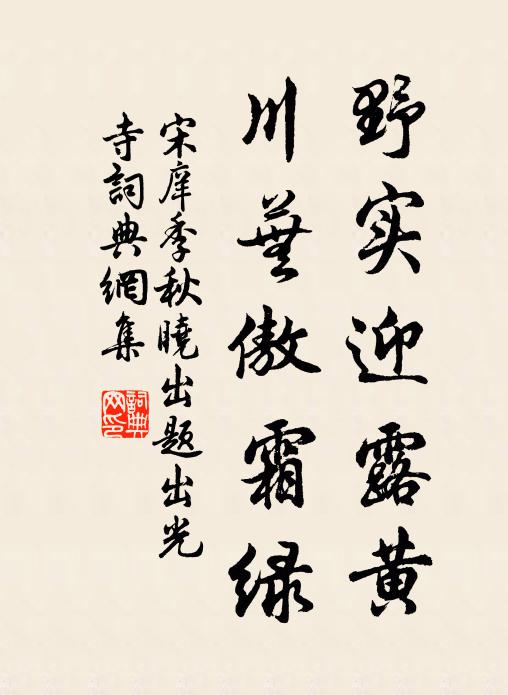 野实迎露黄
川芜傲霜绿
宋庠季秋晓出题出光
寺詞典網集
詞典网印